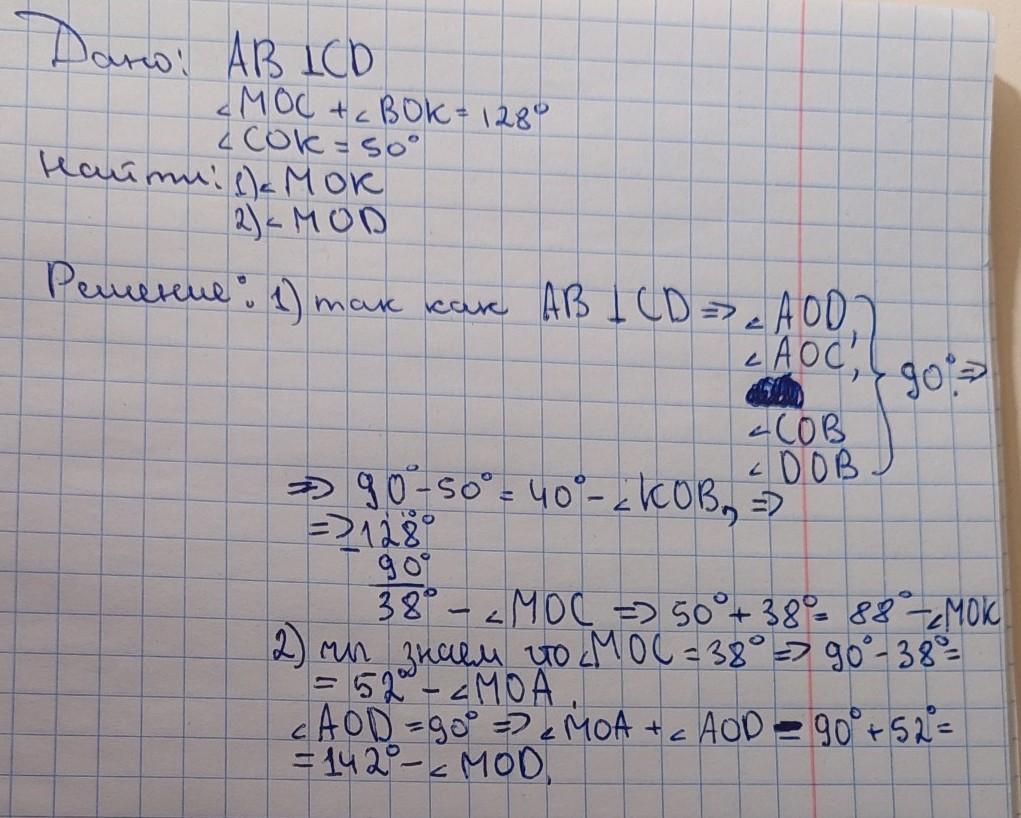 Дано: AB ⊥ CD
∠MOC + ∠BOK = 128°
∠COK = 50°
Найти: 1) ∠MOK
2) ∠MOD
Решение: 1) так как AB ⊥ CD => ∠AOD,
∠AOC,
∠COB
∠DOB } 90° =>
=> 90° - 50° = 40° - ∠KOB, =>
=> 128°
- 90°
38° - ∠MOC => 50° + 38° = 88° - ∠MOK
2) мы знаем что ∠MOC = 38° => 90° - 38° =
= 52° - ∠MOA.
∠AOD = 90° => ∠MOA + ∠AOD = 90° + 52° =
= 142° - ∠MOD.